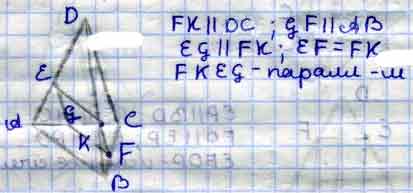 D
FK || DC ; gF || AB
E
Eg || FK ; EF = FK
FKEg - паралл - м
A
g
C
K
F
B